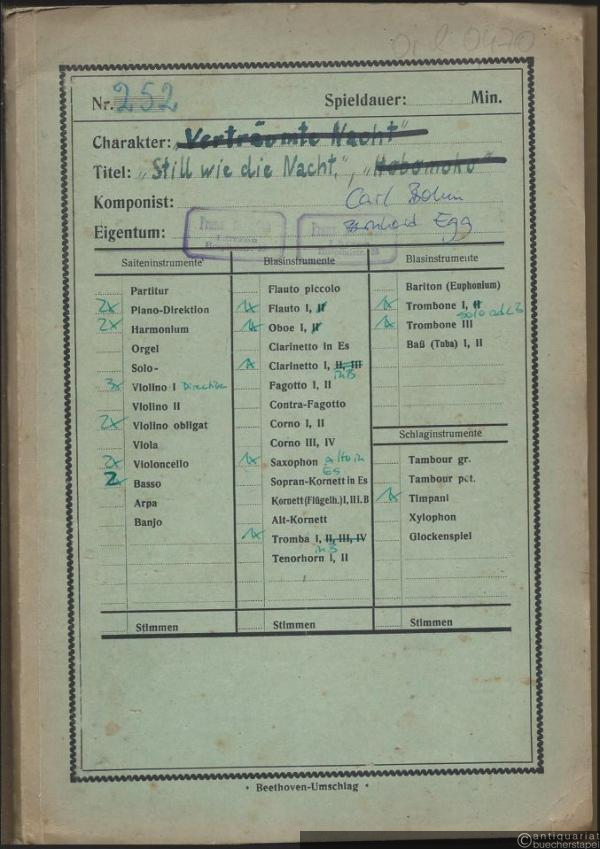 Nr. 252 Spieldauer: Min.
Charakter: „Verträumte Nacht"
Titel: „Still wie die Nacht.", „Nobomoko"
Komponist: Carl Bohm
Eigentum: Egg
Saiteninstrumente
Partitur
2x Piano-Direktion
2x Harmonium
Orgel
Solo-
3x Violino I Direction
Violino II
2x Violino obligat
Viola
2x Violoncello
2 Basso
Arpa
Banjo
Stimmen
Blasinstrumente
Flauto piccolo
1x Flauto I, II
1x Oboe I, II
Clarinetto in Es
1x Clarinetto I, II, III
in B
Fagotto I, II
Contra-Fagotto
Corno I, II
Corno III, IV
1x Saxophon alto in
Es
Sopran-Kornett in Es
Kornett (Flügelh.) I, II i. B
Alt-Kornett
1x Tromba I, II, III, IV
in B
Tenorhorn I, II
Stimmen
Blasinstrumente
Bariton (Euphonium)
1x Trombone I, II
solo ad L B
1x Trombone III
Baß (Tuba) I, II
Schlaginstrumente
Tambour gr.
Tambour pct.
1x Timpani
Xylophon
Glockenspiel
Stimmen
• Beethoven-Umschlag •
antiquariat
buecherstapel